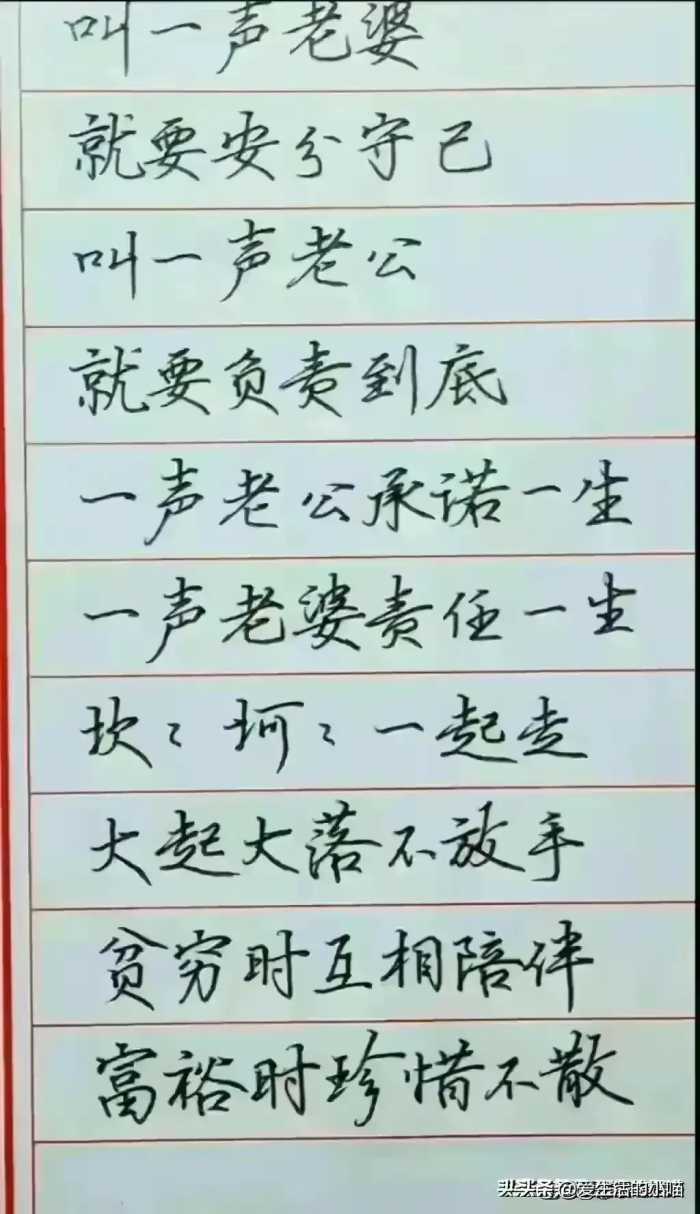 叫一声老婆
就要安分守己
叫一声老公
就要负责到底
一声老公承诺一生
一声老婆责任一生
坎々坷々一起走
大起大落不放手
贫穷时互相陪伴
富裕时珍惜不散
头条 @爱生活的小喵